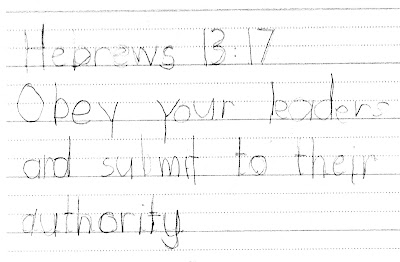 Hebrews 13:17
Obey your leaders
and submit to their
authority